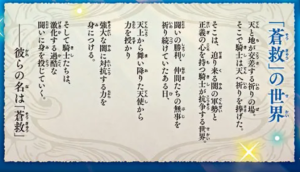 「蒼救」の世界
天と地が交差する祈りの場。
そこで騎士は天へ祈りを捧げた。
そこは、迫り来る闇の軍勢と
正義の心を持つ騎士が抗争する世界。
闘いの勝利、仲間たちの無事を
祈り続けていたある日。
天上から舞い降りた天使から
力を授かり
強大な闇に対抗する力を
身につける。
そして騎士たちは、
激化する過酷な
闘いに身を投じていく。
――彼らの名は「蒼救」